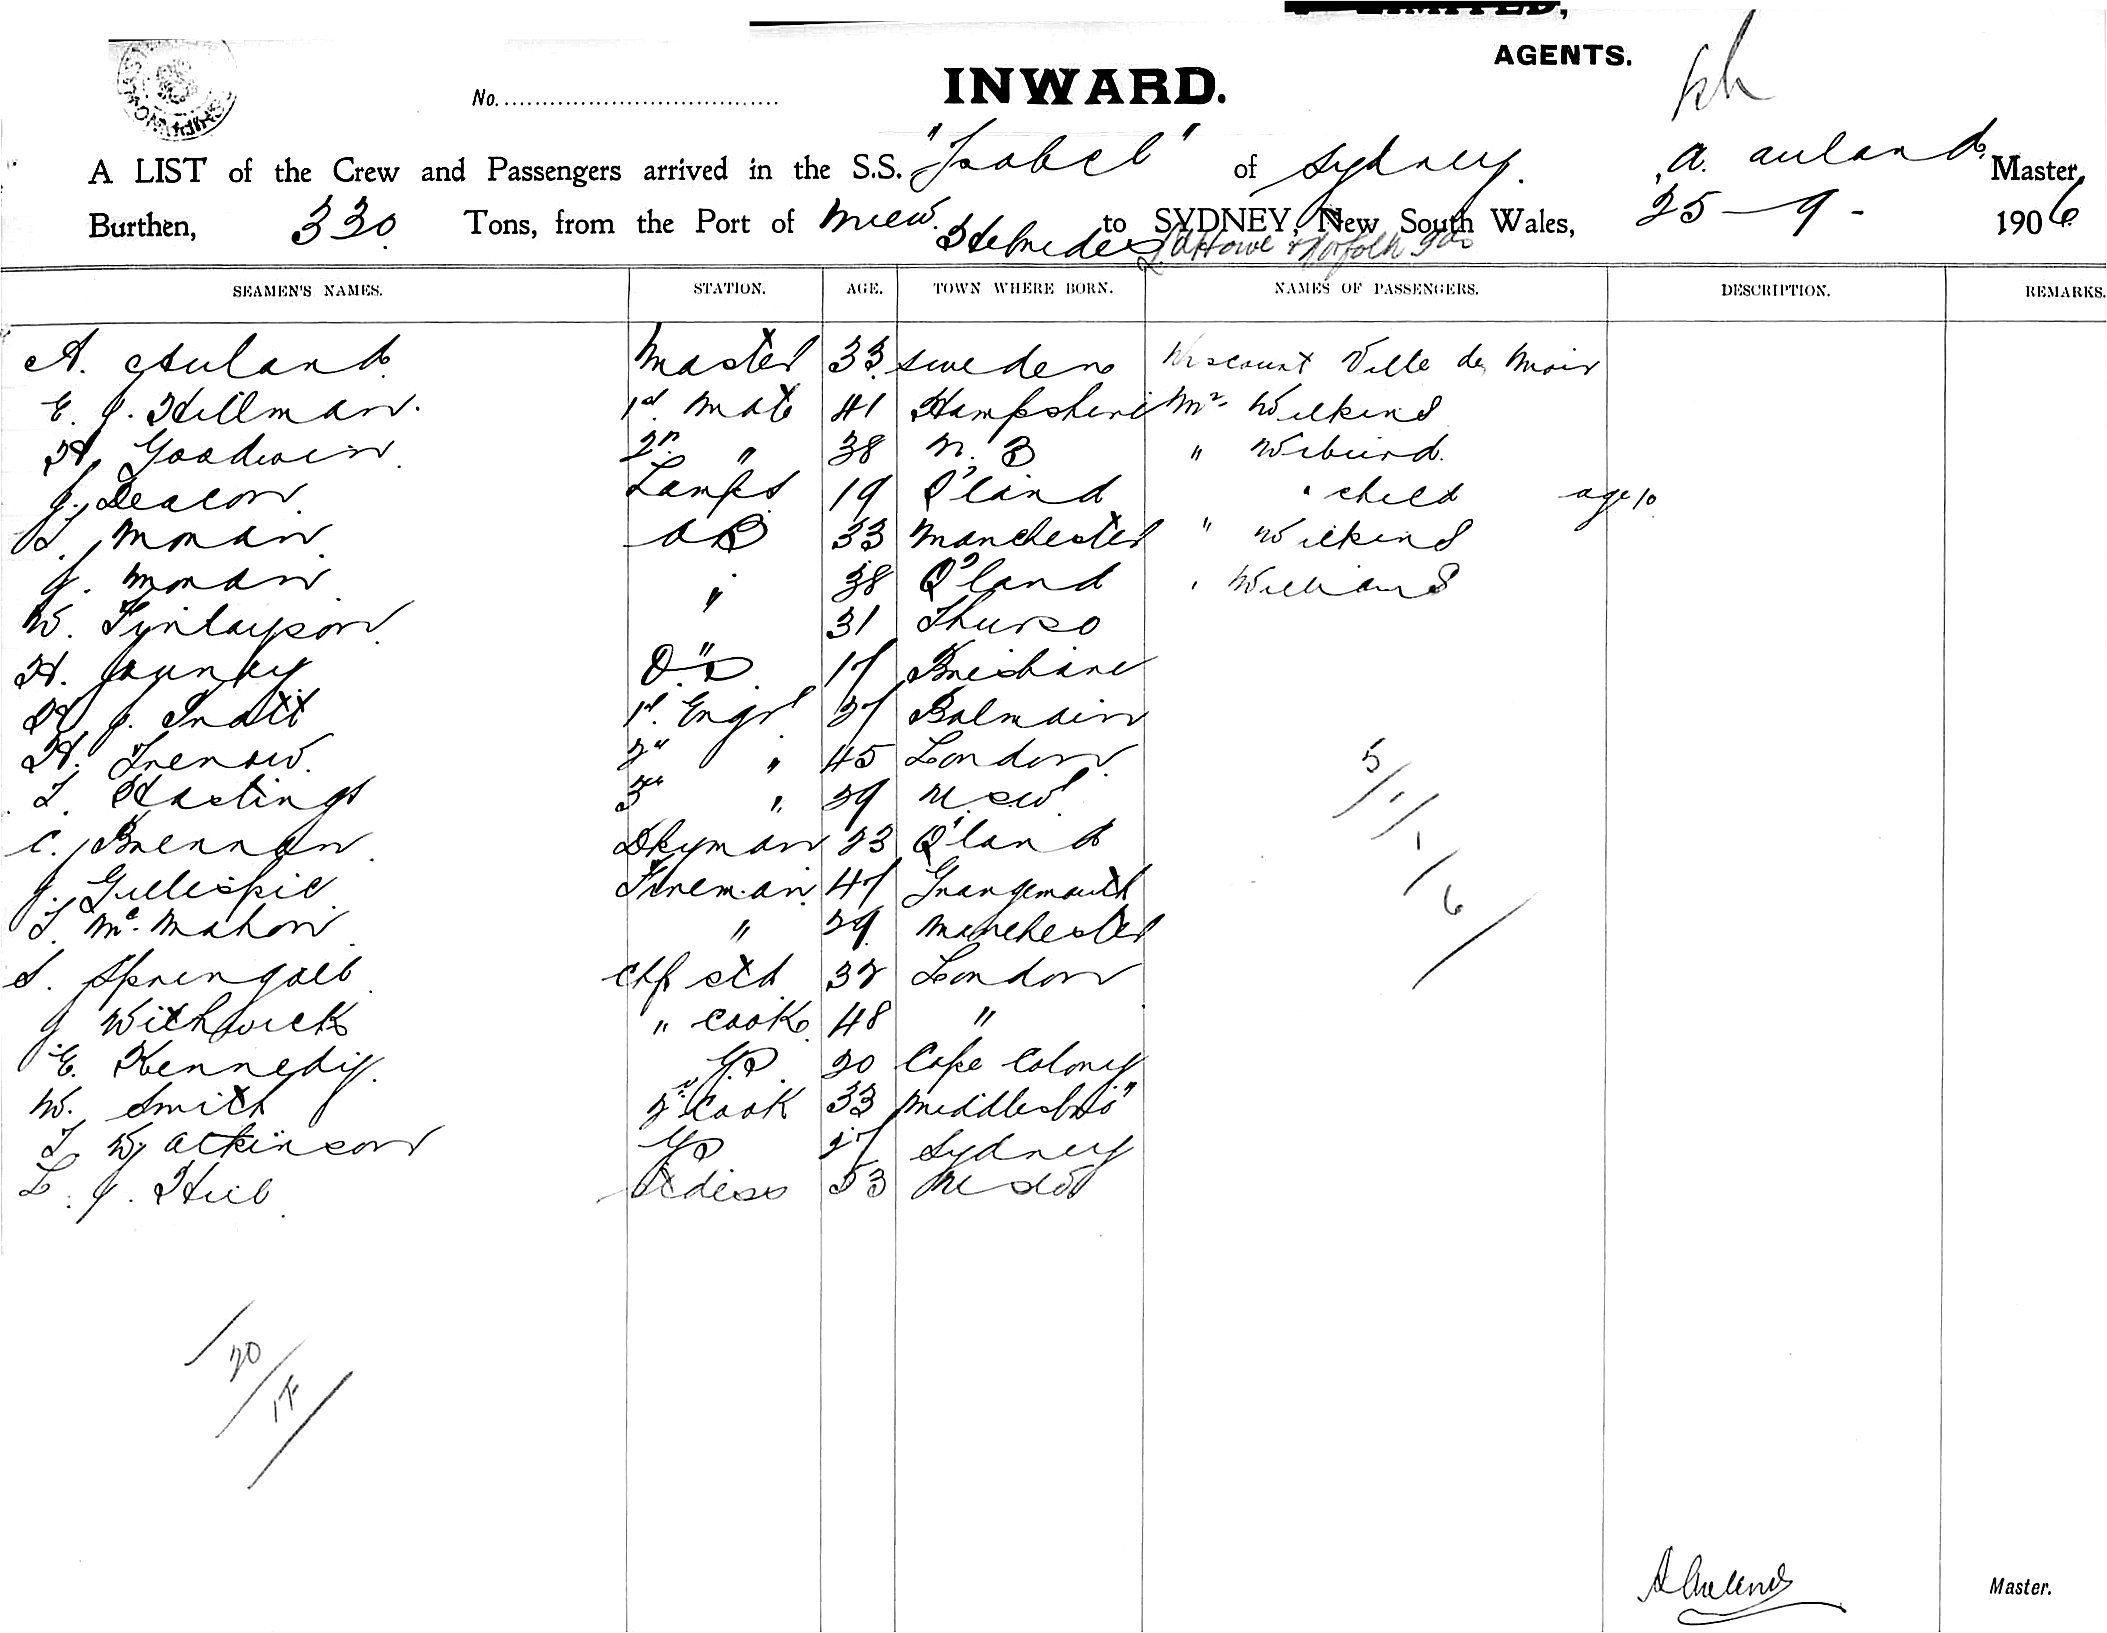 LIMITED,
AGENTS.
No.
INWARD.
A LIST of the Crew and Passengers arrived in the S.S. "Isabel" of Sydney. A. Auland, Master,
Burthen, 330 Tons, from the Port of New Hebrides to SYDNEY, New South Wales, 25-9-1906
Ld Howe & Norfolk Ids
SEAMEN'S NAMES. STATION. AGE. TOWN WHERE BORN. NAMES OF PASSENGERS. DESCRIPTION. REMARKS.
A. Auland Master 33 Sweden Viscount Ville de
E. J. Hillman 1st Mate 41 Hampshire Mr Wilkins
H. Goodwin 2n " 38 N. B "
J. Deacon Lamps 19 Q'land " child age 10
T. Moran AB 33 Manchester " Wilkins
J. Moran " 38 Q'land " Williams
W. Finlayson " 31 Thurso
H. O.S 17 Brisbane
H J. Pratt 1st Engr 37 Balmain
H. Trenow 2n " 45 London
T. Hastings 3rd " 29 N.S.W
C. Brennan Dkyman 23 Q'land
J. Gillespie Fireman 47 Grangemouth
T. McMahon " 29 Manchester
S. Springall Chf Std 32 London
J Withwick " Cook 48 "
E. Kennedy GS 20 Cape Colony
W. Smith 2n Cook 33 Middlesbro"
T. W. Atkinson GS 27 Sydney
L. J. Stdess 53 NSW
5/1/1/6/
/20/
A Auland Master.